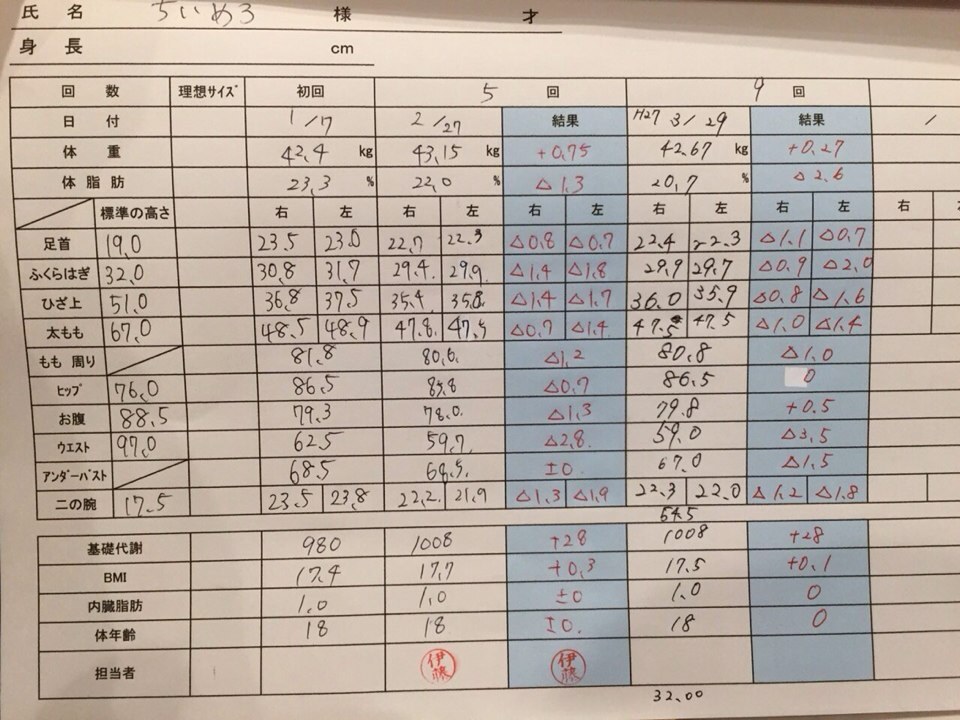 氏 名 ちいめろ 様 才
身 長 cm
回 数 理想サイズ 初回 5 回 9 回
日 付 1/17 2/27 結果 H27 3/29 結果 /
体 重 42.4 kg 43.15 kg +0.75 42.67 kg +0.27
体 脂 肪 23.3 % 22.0 % △1.3 20.7 % △2.6
標準の高さ 右 左 右 左 右 左 右 左 右 左 右
足首 19.0 23.5 23.0 22.7 22.3 △0.8 △0.7 22.4 22.3 △1.1 △0.7
ふくらはぎ 32.0 30.8 31.7 29.4. 29.9. △1.4 △1.8 29.9 29.7 △0.9 △2.0
ひざ上 51.0 36.8 37.5 35.4 35.8. △1.4 △1.7 36.0 35.9 △0.8 △1.6
太もも 67.0 48.5 48.9 47.8. 47.5 △0.7 △1.4 47.5 47.5 △1.0 △1.4
もも 周り 81.8 80.6. △1.2 80.8 △1.0
ヒップ 76.0 86.5 85.8 △0.7 86.5 0
お腹 88.5 79.3 78.0. △1.3 79.8 +0.5
ウエスト 97.0 62.5 59.7. △2.8. 59.0 △3.5
アンダーバスト 68.5 68.5. ±0. 67.0 △1.5
二の腕 17.5 23.5 23.8 22.2. 21.9 △1.3 △1.9 22.3 22.0 △1.2 △1.8
64.5
基礎代謝 980 1008 +28 1008 +28
BMI 17.4 17.7 +0.3 17.5 +0.1
内臓脂肪 1.0 1.0 ±0 1.0 0
体年齢 18 18 ±0. 18 0
担当者 伊藤 伊藤
32.00